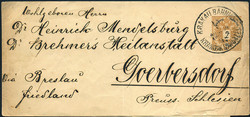 Wohlgeboren Herrn
Dr Heinrich Mendelsburg
Dr Brehmers Heilanstalt
Goerbersdorf
via Breslau
Friedland
Preuss. Schlesien
KRAKAU BAHNHOF
2